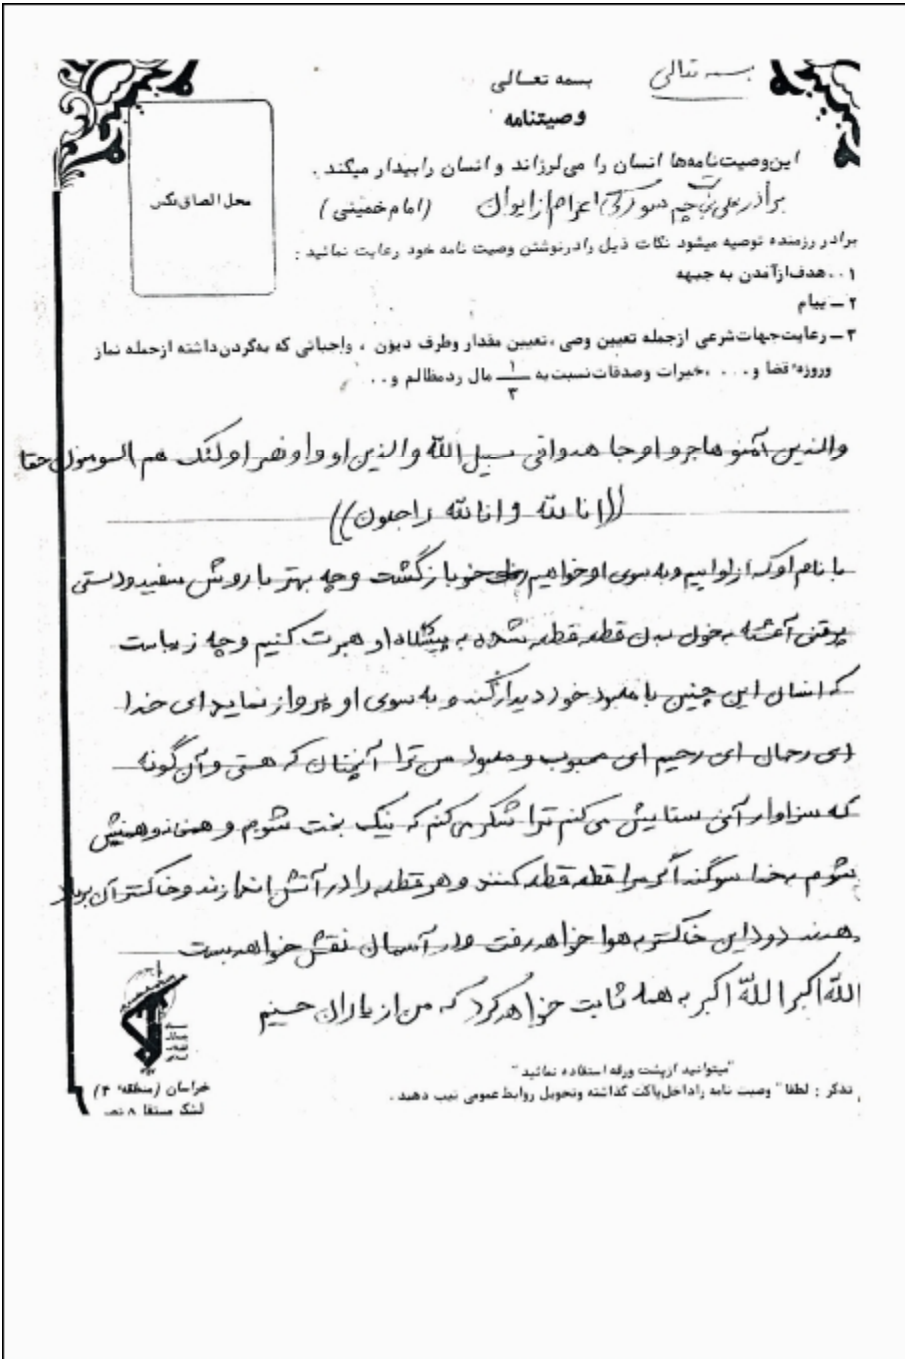 بسمه تعالی
بسمه تعالی
وصیتنامه
این وصیت‌نامه‌ها انسان را می‌لرزاند و انسان را بیدار میکند .
برادر علی اعزام از ایوان (امام خمینی)
محل الصاق عکس
برادر رزمنده توصیه میشود نکات ذیل را در نوشتن وصیت نامه خود رعایت نمائید :
۱ ـ هدف از آمدن به جبهه
۲ ـ پیام
۳ ـ رعایت جهات شرعی از جمله تعیین وصی ، تعیین مقدار و طرف دیون ، واجباتی که به گردن داشته از جمله نماز
و روزه قضا و . . . ، خیرات و صدقات نسبت به ۱/۳ مال رد مظالم و . . .
والذین آمنو هاجرو او جا هدوافی سبیل الله والذین او واو نصر او لئک هم المومنون حقا
((انا لله و انا لله راجعون))
با نام او که از اوییم و به سوی او خواهیم بازگشت و چه بهتر با روش سفید و دستی
آغشته بخون بدن قطعه قطعه شده به پیشگاه او هجرت کنیم و چه زیباست
که انسان این چنین با معبود خود دیدار کند و به سوی او پرواز نماید ای خدا
ای رحمان ای رحیم ای محبوب و معبود من ترا آنچنان که هستی و آن گونه
که سزاوار آنی ستایش می کنم ترا شکر می کنم که نیک بخت شویم و
شوم بخدا سوگند اگر مرا قطعه قطعه کنند و هر قطعه را در آتش اندازند و خاکستر آن برباد
دهند دود این خاکستر به هوا خواهد رفت و در آسمان نقش خواهد بست
الله اکبر الله اکبر به همه ثابت خواهد کرد که من از یاران حسینم
"میتوانید از پشت ورقه استفاده نمائید"
تذکر : لطفا" وصیت نامه را داخل پاکت گذاشته و تحویل روابط عمومی تیپ دهید .
خراسان (منطقه ۴)